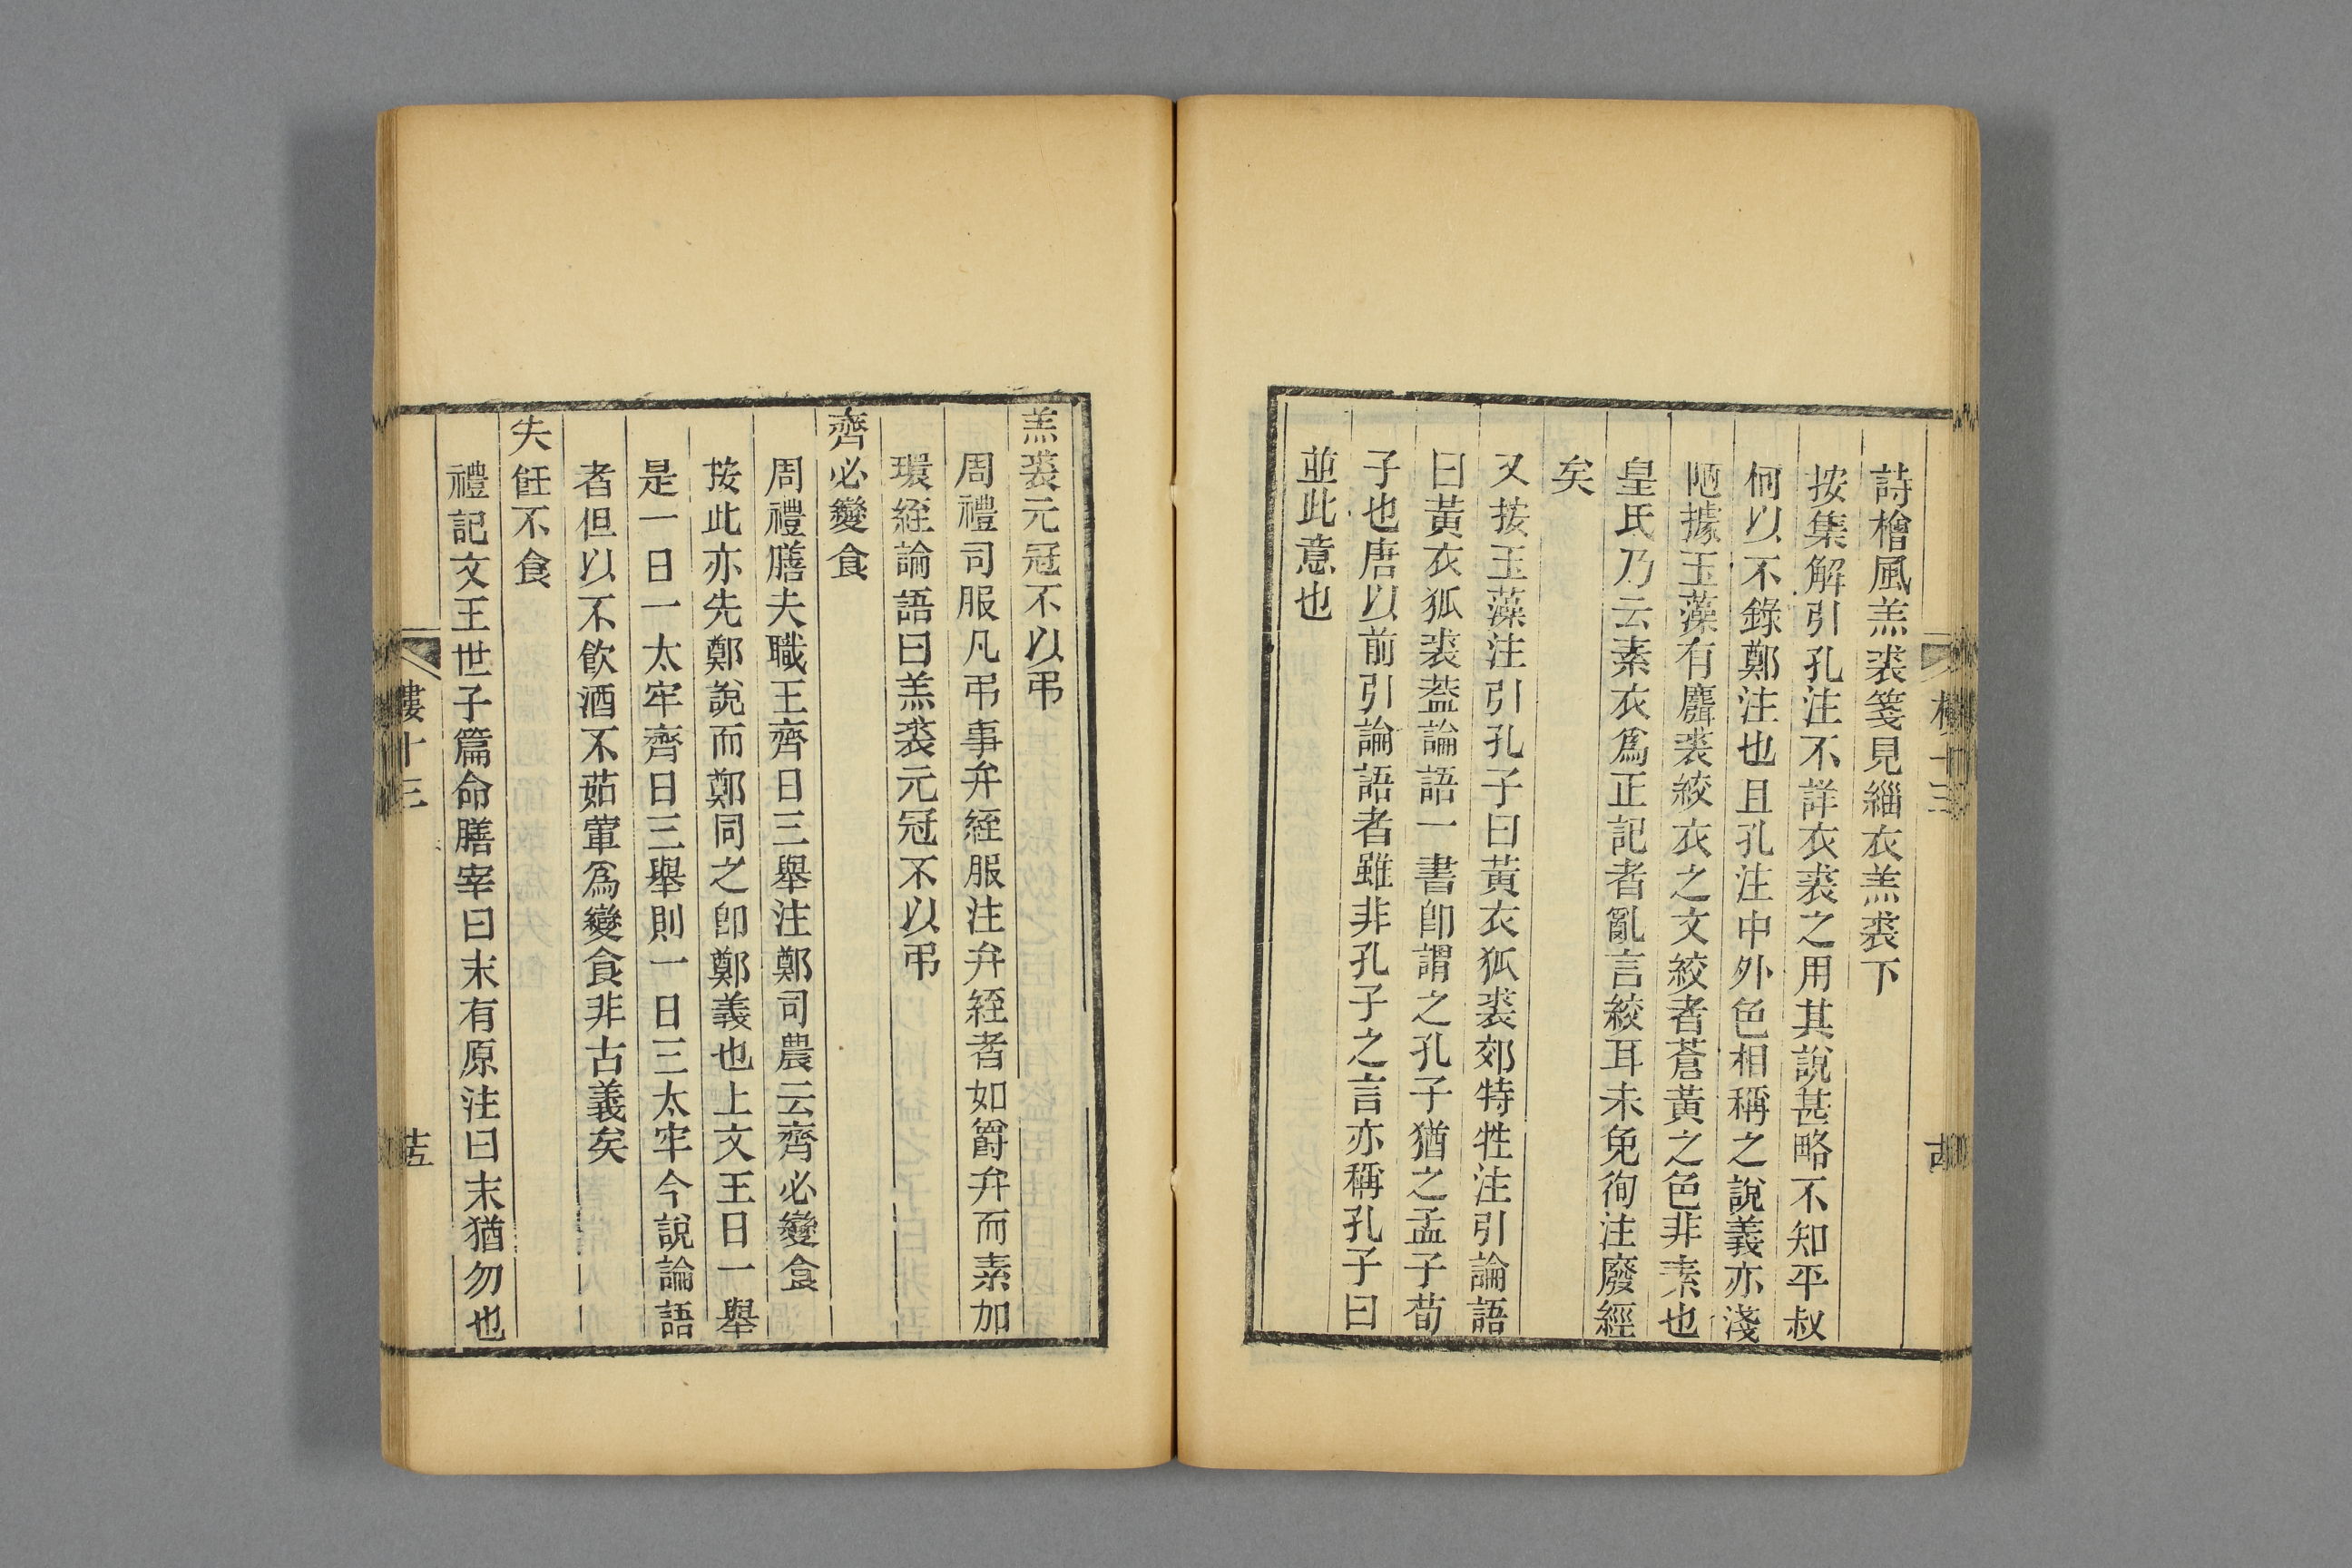 詩檜風羔裘箋見緇衣羔裘下
按集解引孔注不詳衣裘之用其說甚略不知平叔
何以不錄鄭注也且孔注中外色相稱之說義亦淺
陋據玉藻有麛裘絞衣之文絞者蒼黃之色非素也
皇氏乃云素衣爲正記者亂言絞耳未免徇注廢經
矣
又按玉藻注引孔子曰黃衣狐裘郊特牲注引論語
曰黃衣狐裘葢論語一書卽謂之孔子猶之孟子荀
子也唐以前引論語者雖非孔子之言亦稱孔子曰
並此意也
羔裘元冠不以弔
周禮司服凡弔事弁絰服注弁絰者如爵弁而素加
環絰論語曰羔裘元冠不以弔
齊必變食
周禮膳夫職王齊日三舉注鄭司農云齊必變食
按此亦先鄭說而鄭同之卽鄭義也上文王日一舉
是一日一太牢齊日三舉則一日三太牢今說論語
者但以不飮酒不茹葷爲變食非古義矣
失飪不食
禮記文王世子篇命膳宰曰末有原注曰末猶勿也
十三